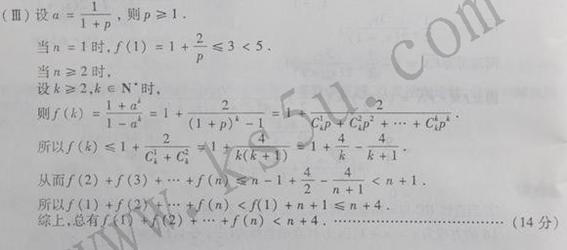 (Ⅲ) 设 a = 1/(1+p) , 则 p ≥ 1 .
当 n = 1 时, f(1) = 1 + 2/p ≤ 3 < 5 .
当 n ≥ 2 时,
设 k ≥ 2, k ∈ N* 时,
则 f(k) = (1+a^k)/(1-a^k) = 1 + 2/((1+p)^k - 1) = 1 + 2/(C_k^1 p + C_k^2 p^2 + ⋯ + C_k^k p^k) .
所以 f(k) ≤ 1 + 2/(C_k^1 + C_k^2) = 1 + 4/(k(k+1)) = 1 + 4/k - 4/(k+1) .
从而 f(2) + f(3) + ⋯ + f(n) ≤ n - 1 + 4/2 - 4/(n+1) < n + 1 .
所以 f(1) + f(2) + ⋯ + f(n) < f(1) + n + 1 ≤ n + 4 .
综上,总有 f(1) + f(2) + ⋯ + f(n) < n + 4 . ⋯⋯⋯⋯⋯⋯⋯⋯⋯⋯ (14 分)
www.ks5u.com